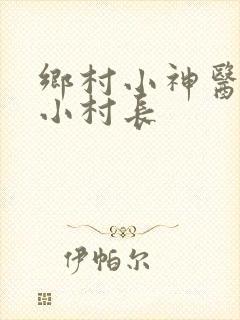 鄉村小神醫
小村長
伊帕尔